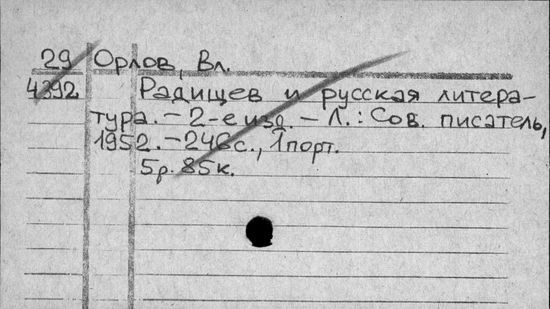 29 Орлов, Вл.
4392 Радищев и русская литера-
тура. – 2-е изд. – Л.: Сов. писатель,
1952. – 246 с., 1 порт.
5р. 85к.